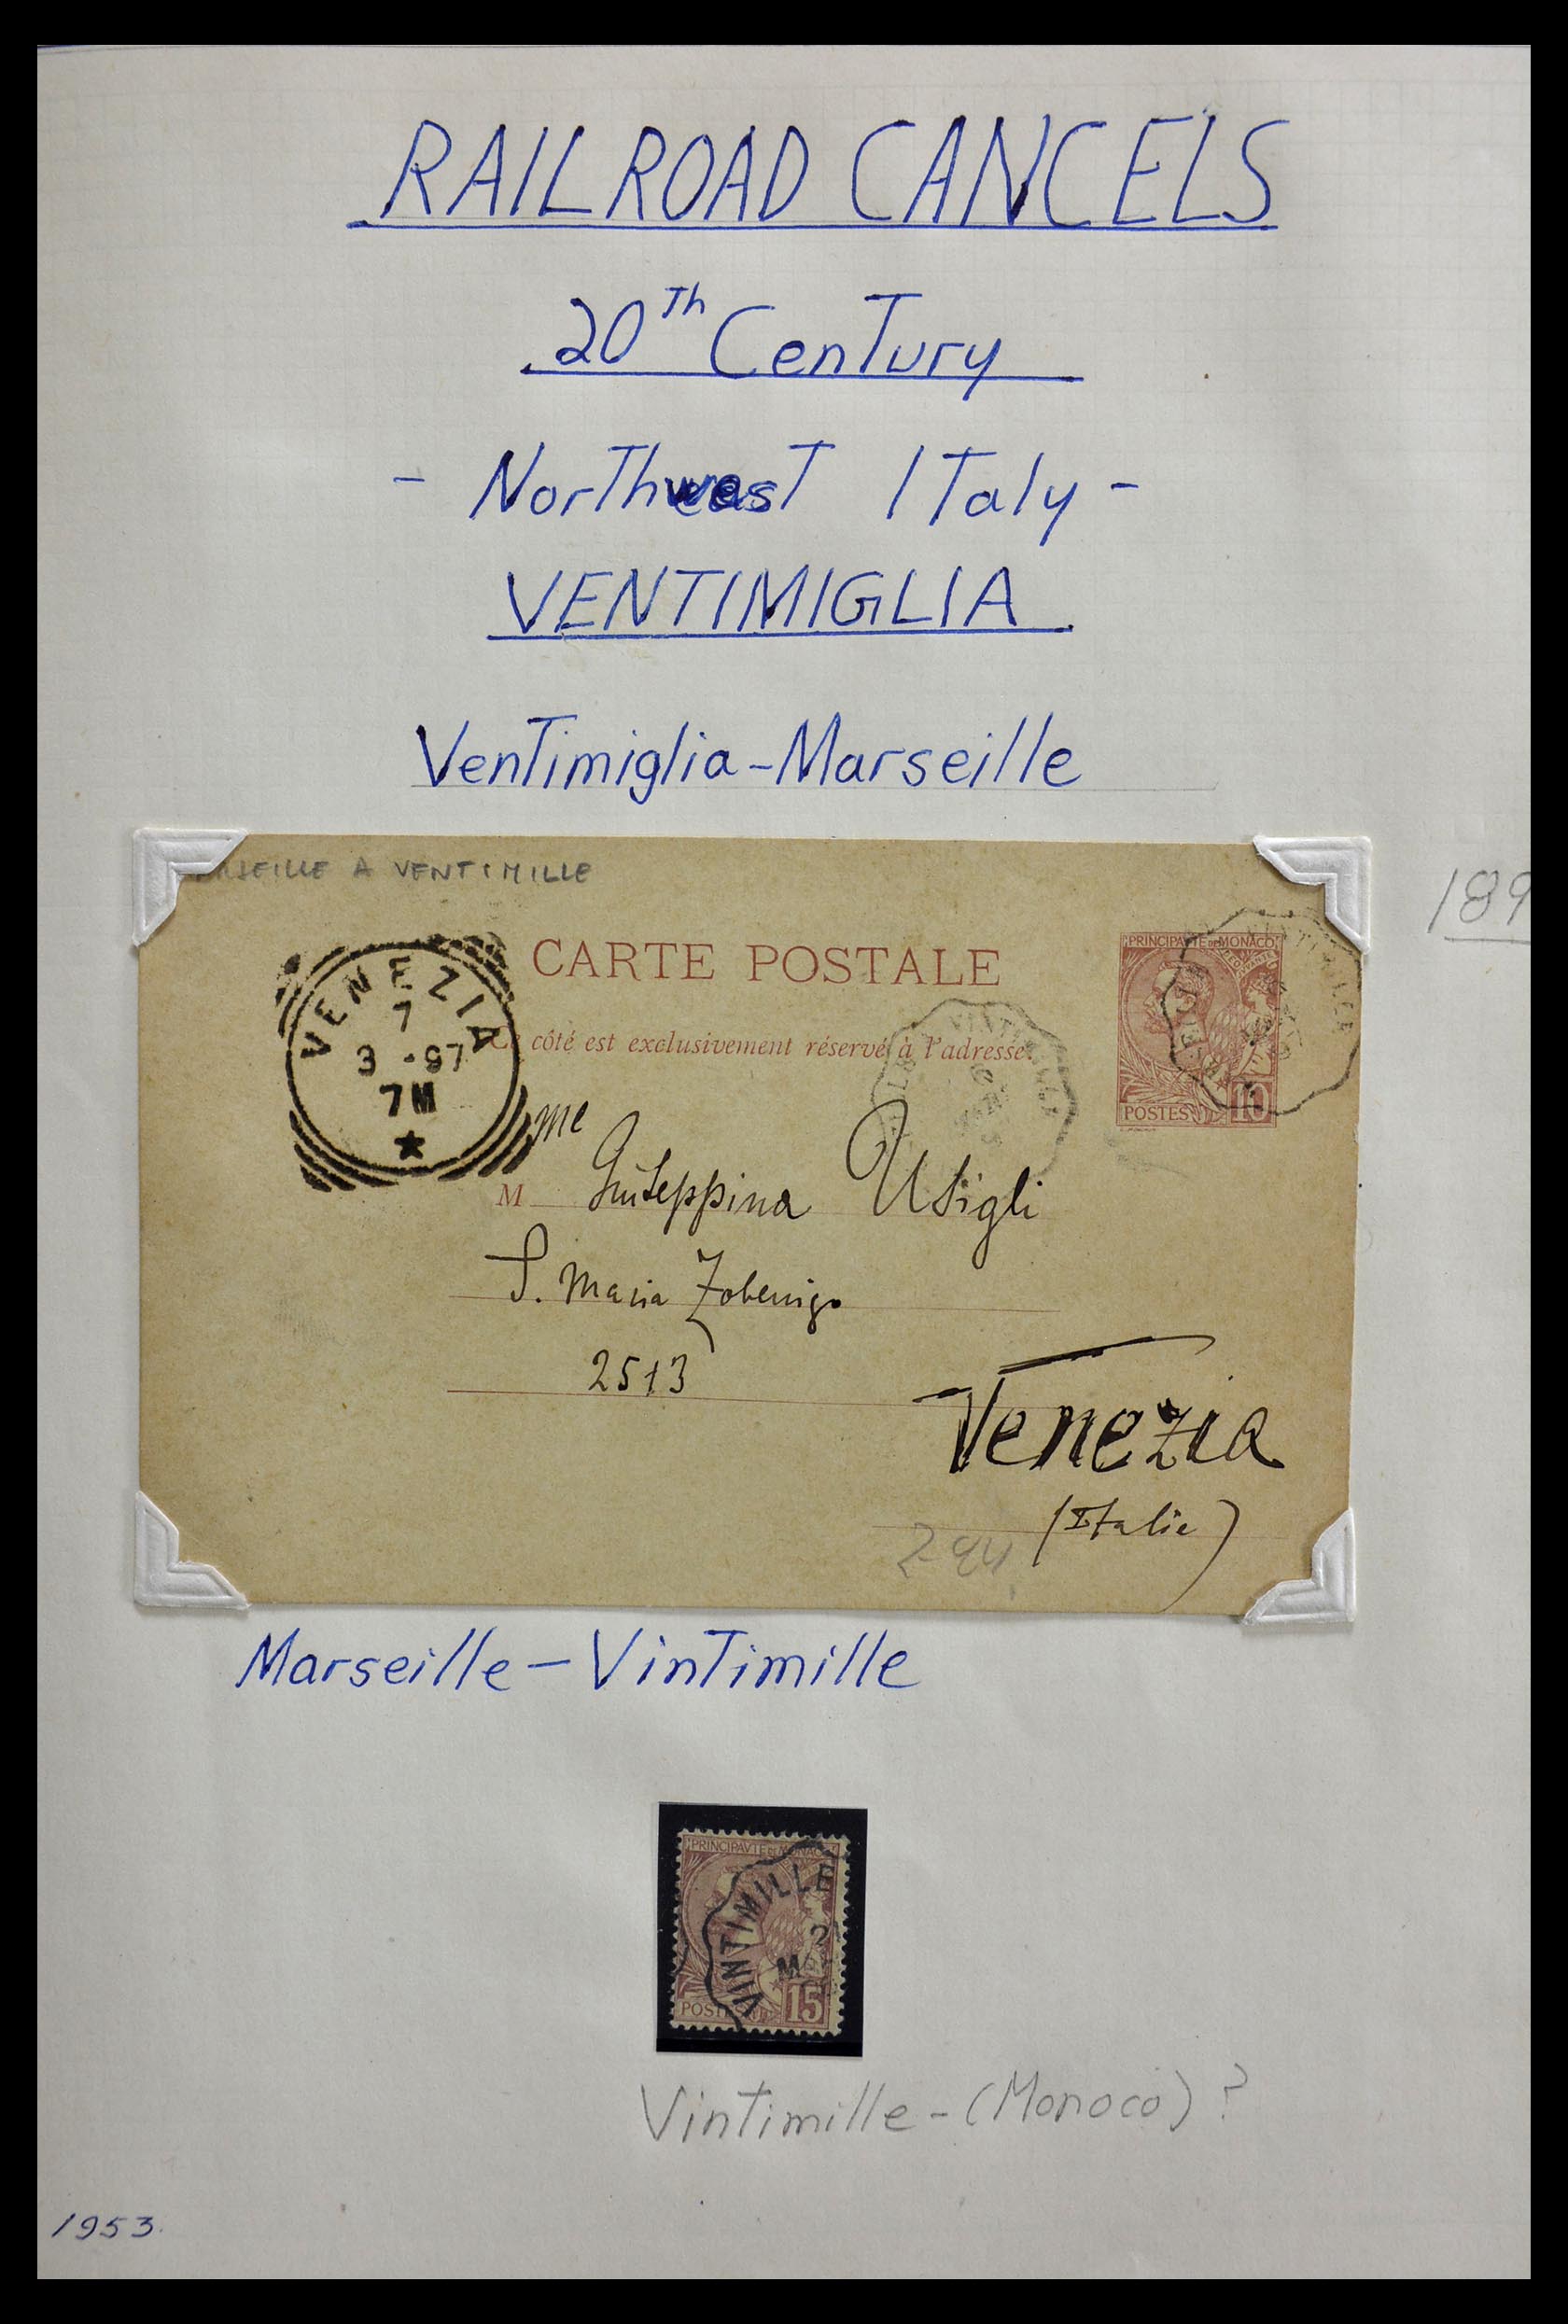 RAILROAD CANCELS
20Th CenTury
- NorThwesT ITaly -
VENTIMIGLIA
VenTimiglia-Marseille
189
A VENTIMILLE
CARTE POSTALE
PRINCIPAVTE DE MONACO
VENEZIA
7
3 - 97
7M
côté est exclusivement réservé à l'adresse.
POSTES 10
VINTIMILLE
me
M Giuseppina Usigli
S. Maria Zobenigo
2513
Venezia
(Italie)
Marseille-VinTimille
PRINCIPAVTE DE MONACO
VINTIMILLE
2
15
VinTimille-(Monoco)?
1953.